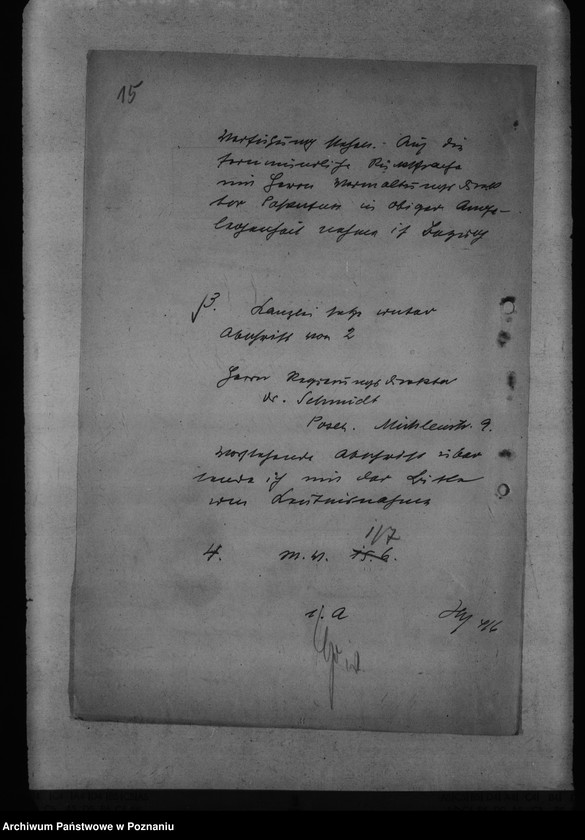 15
Verfügung stehen. Auf die
fernmündliche Rücksprache
mit Herrn Verwaltungsdirek
tor in obiger Ange-
legenheit nehme ich Bezug
3. Kanzlei setze unter
Abschrift von 2
Herrn Regierungsdirektor
Dr. Schmidt
Posen. 9.
Vorstehende Abschrift über
sende ich mit der Bitte
um Kenntnisnahme
1/7
4. W. V. 15.6.
I. A
4/6
Archiwum Państwowe w Poznaniu